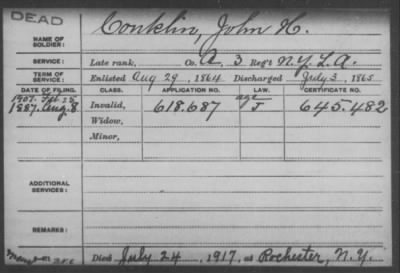 DEAD
NAME OF SOLDIER: Conklin, John H.
SERVICE: Late rank, Co. A, 3 Reg't N.Y.L.A.
TERM OF SERVICE: Enlisted Aug 29, 1864 Discharged July 3, 1865
DATE OF FILING. CLASS. APPLICATION NO. LAW. CERTIFICATE NO.
1907. Feb 25 age
1887. Aug. 8 Invalid, 618.687 J 645.482
Widow,
Minor,
ADDITIONAL SERVICES:
REMARKS:
Died July 24, 1917, at Rochester, N.Y.